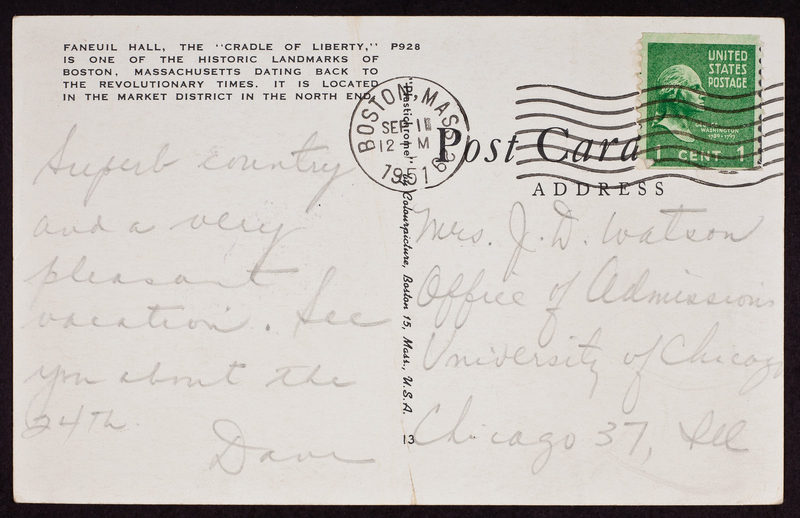 FANEUIL HALL, THE "CRADLE OF LIBERTY," P928
IS ONE OF THE HISTORIC LANDMARKS OF
BOSTON, MASSACHUSETTS DATING BACK TO
THE REVOLUTIONARY TIMES. IT IS LOCATED
IN THE MARKET DISTRICT IN THE NORTH END.
Superb country
and a very
pleasant
vacation. See
you about the
24th.
Dave
"Plastichrome" by Colourpicture, Boston 15, Mass., U.S.A.
13
BOSTON, MASS.
SEP 11
12 M
1951
UNITED
STATES
POSTAGE
WASHINGTON
1789-1797
1 CENT 1
Post Card
ADDRESS
Mrs. J. D. Watson
Office of Admissions
University of Chicago
Chicago 37, Ill